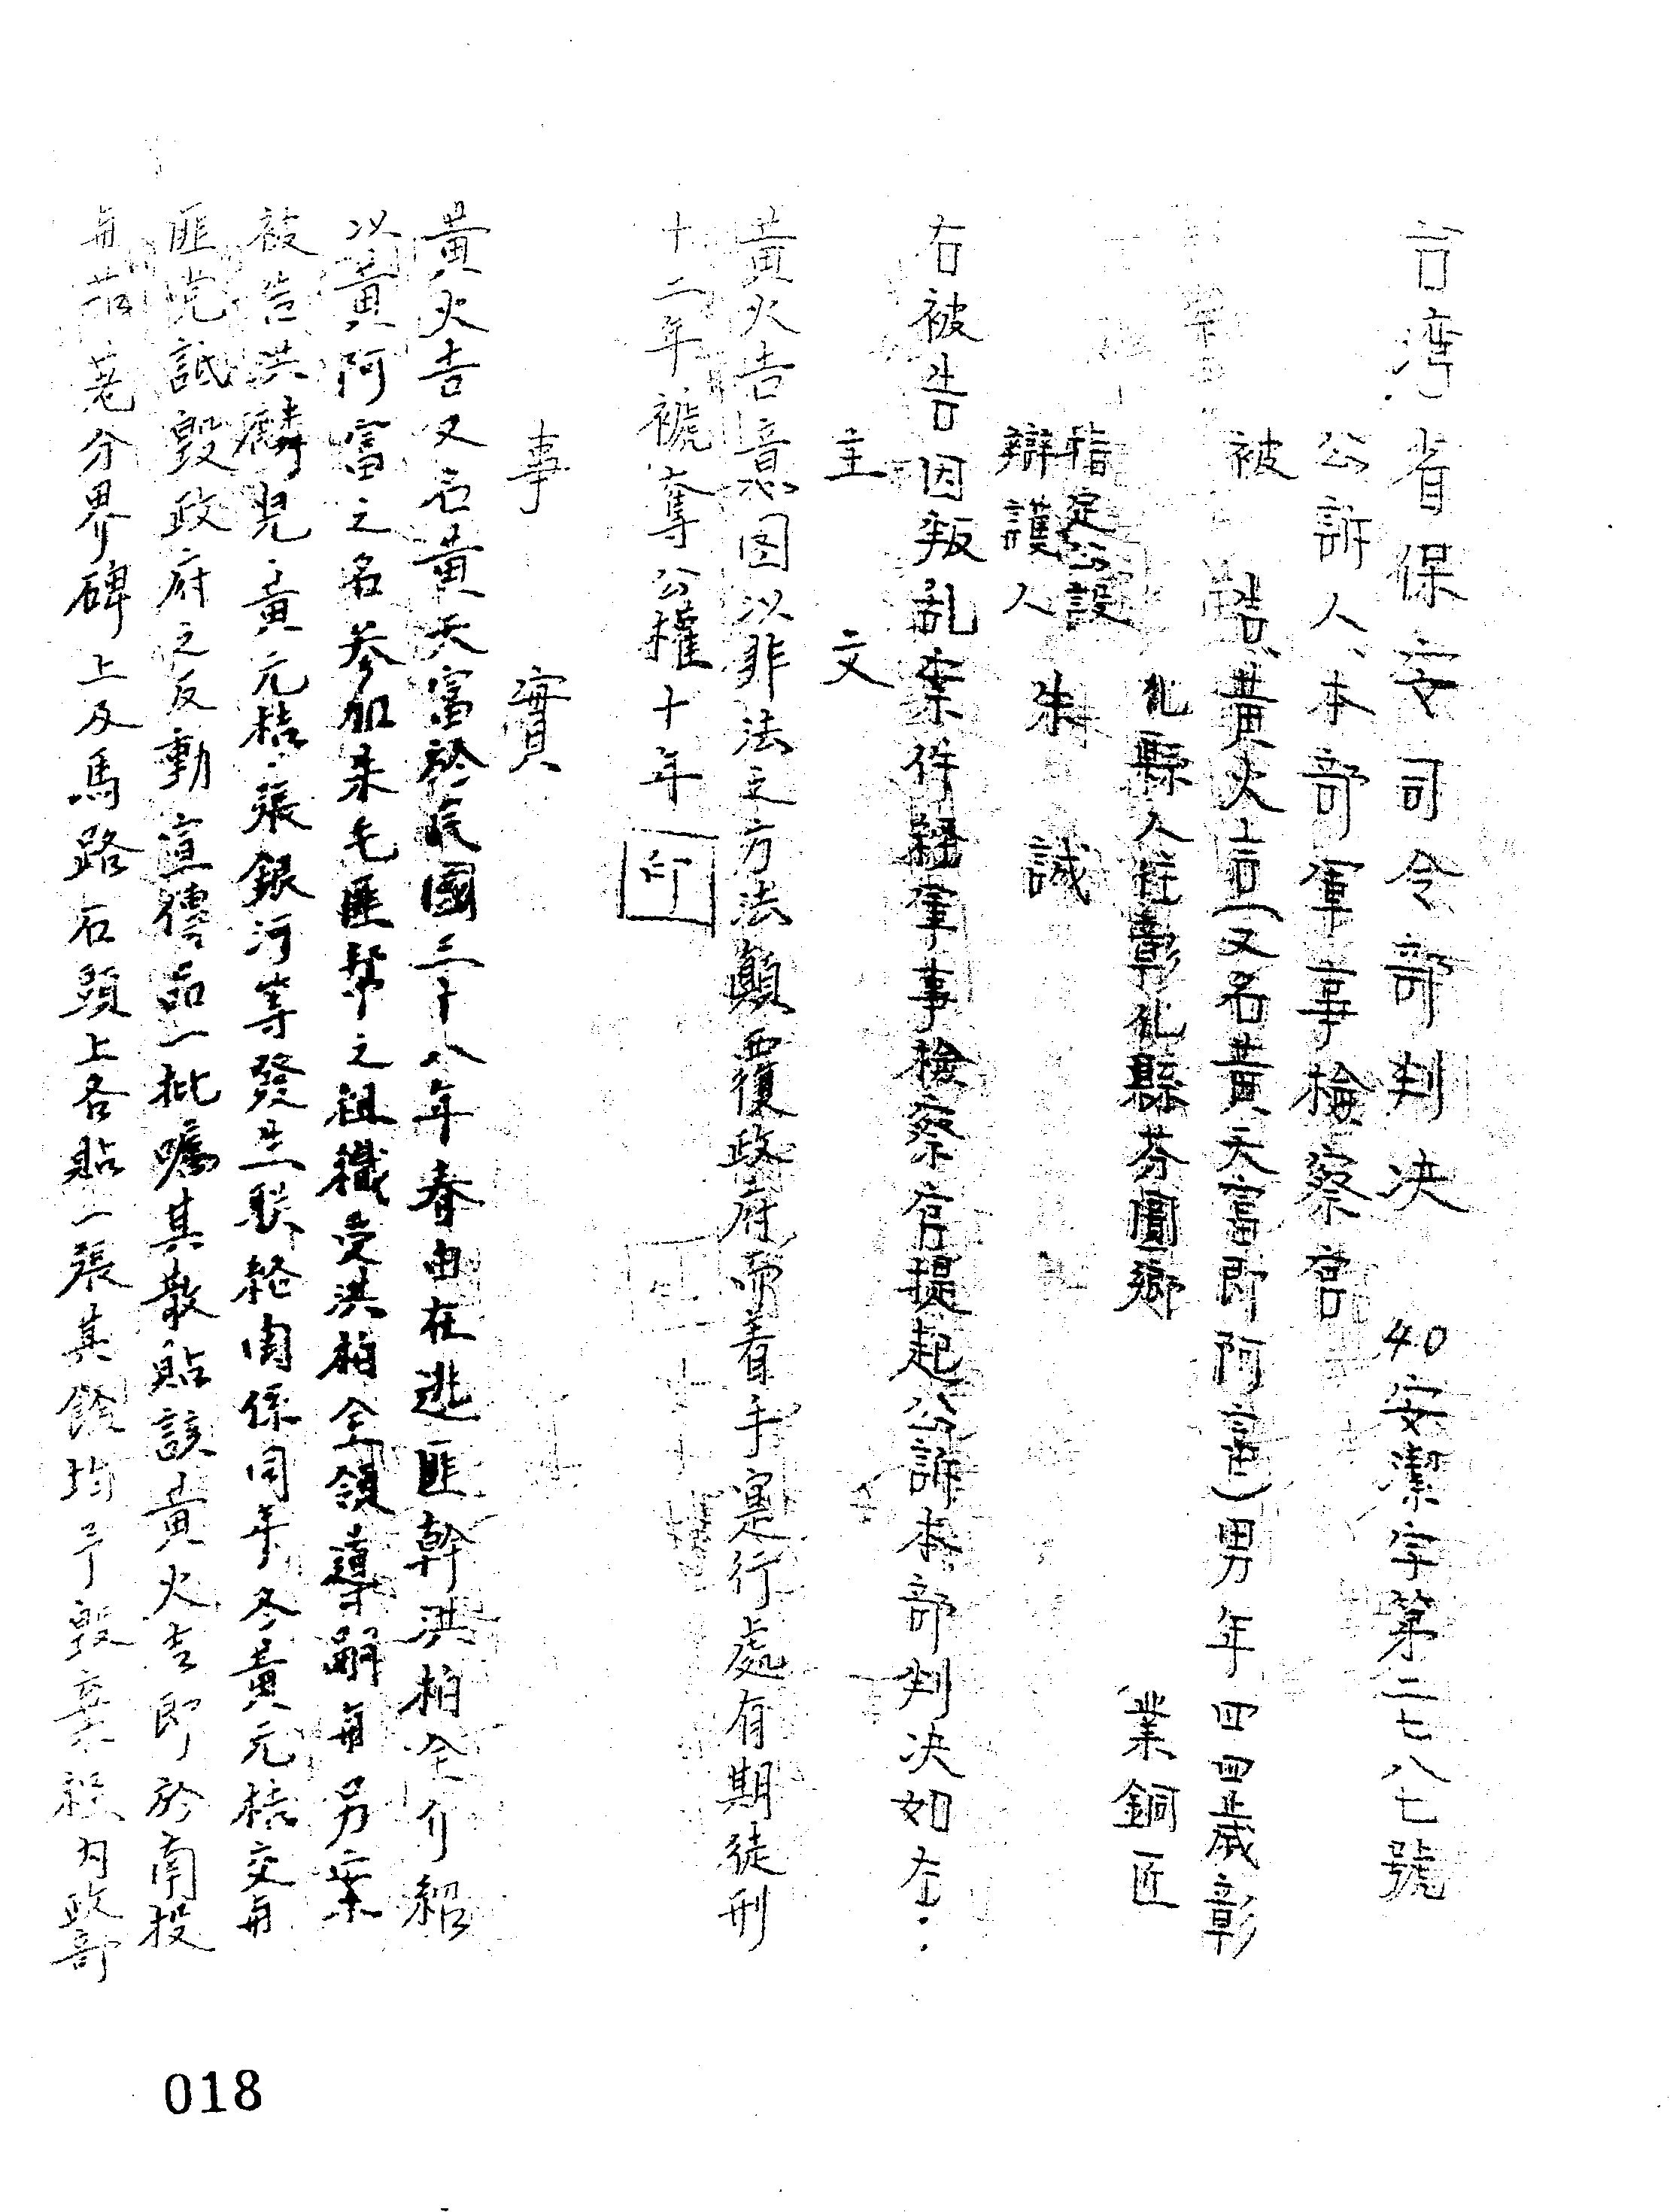 台湾省保安司令部判决 40安潔字第二七八七號
公訴人 本部軍事檢察官
被 告 黃火吉(又名黃天富即阿富)男年四四歲彰
化縣人住彰化縣芬園鄉 業銅匠
指定公設
辯護人 朱 誠
右被告因叛乱案件經軍事檢察官提起公訴本部判决如左.
主 文
黃火吉意图以非法之方法顛覆政府而着手實行處有期徒刑
十二年褫奪公權十年 印
事 實
黃火吉又名黃天富於民國三十八年春由在逃匪幹洪柏全介紹
以黃阿富之名参加朱毛匪幫之組織受洪柏全領導嗣與另案
被告洪麟兒.黃元桔.張銀河等發生联絡関係同年冬黃元桔交與
匪党詆毀政府之反動宣傳品一批囑其散貼該黃火吉即於南投
與芬荖分界碑上及馬路石頭上各貼一張其餘均予毀棄経内政部
018